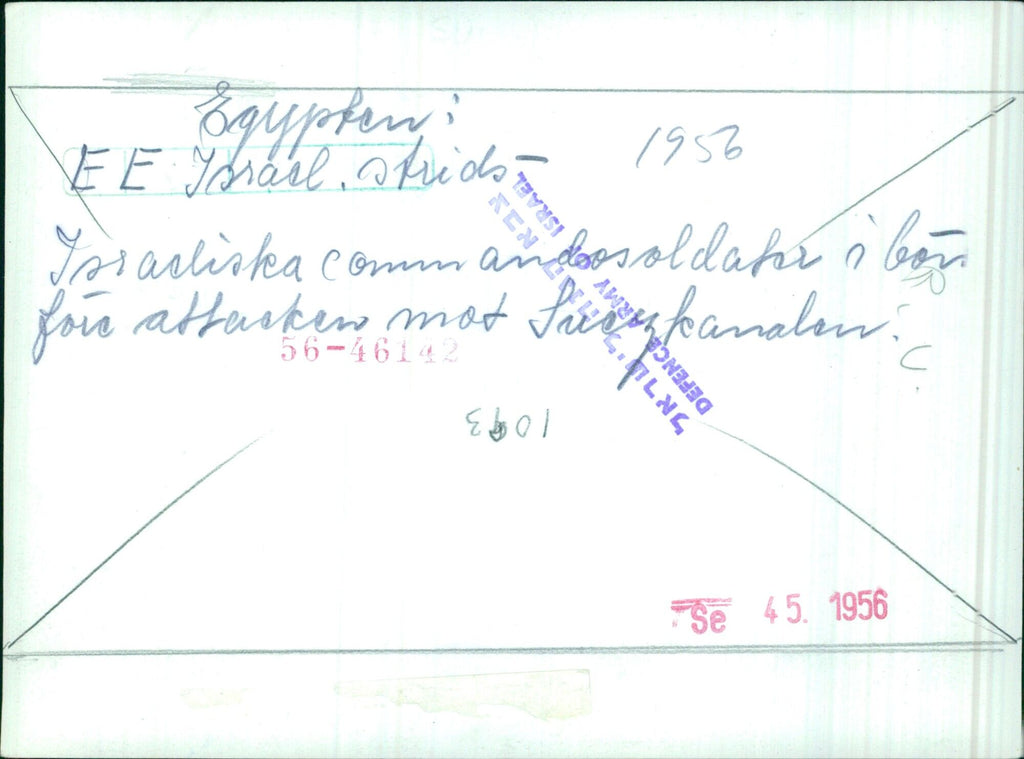 Egypten:
EE Israel. strids-
1956
Israeliska commandosoldater i bön
före attacken mot Suezkanalen.
C.
56-46142
צבא הגנה לישראל
DEFENCE ARMY OF ISRAEL
1093
Se 45. 1956